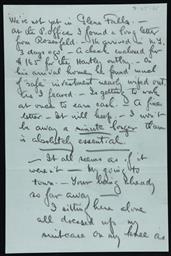 We're not yet in Glens Falls. — at
the P. Office I found a fine letter
from Rosenfeld — He arrived in N.Y.
3 days ago — A check enclosed for
$165 for the Hartley outlay. — On
his arrival home he found most
"safe" investment nearly wiped out.
As I feared — Is getting to work
at once to earn cash — A fine
letter — It will keep — I won't
be away a minute longer than
is absolutely essential —
— It all seems as if it
weren't — My going to
town — Your being already
so far away —
I sitting here alone
all dressed up my
suitcase on my knee as